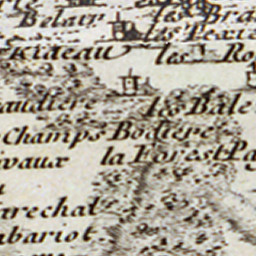 Belair
les Bra
les Pexie
Rideau
les Ro
audiere
les Bale
Champs Bodiere
vaux
la Forest Pa
arechal
abariot